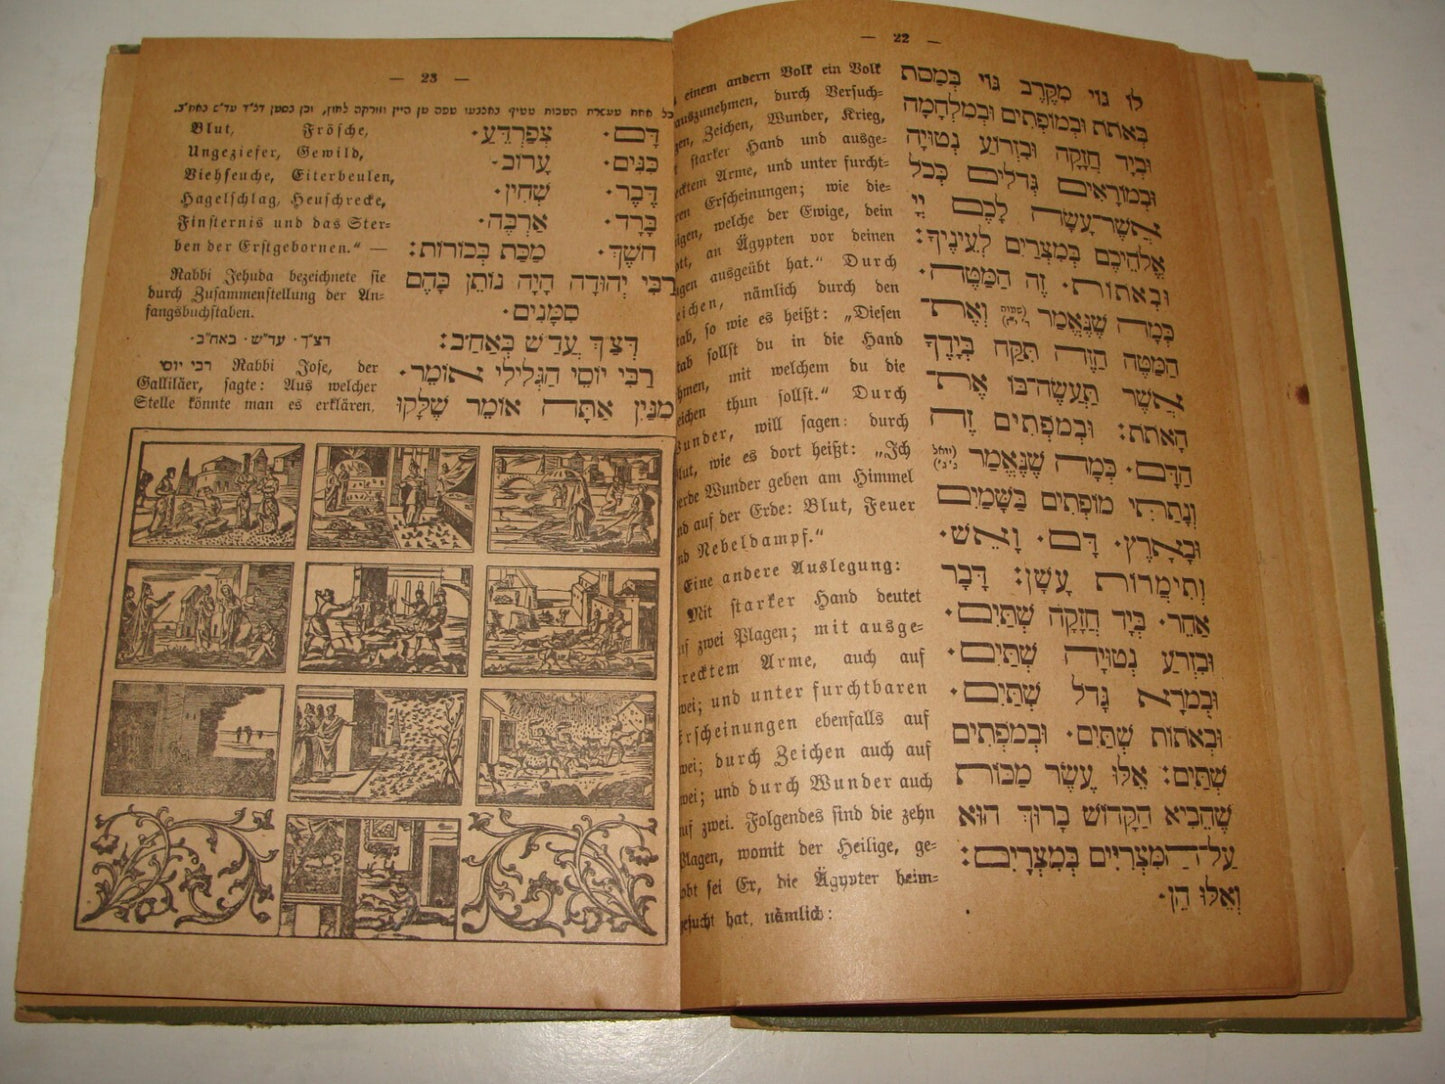 — 22 —
לוֹ גוֹי מִקֶּרֶב גּוֹי בְּמַסֹּת
בְּאֹתֹת וּבְמוֹפְתִים וּבְמִלְחָמָה
וּבְיָד חֲזָקָה וּבִזְרוֹעַ נְטוּיָה
וּבְמוֹרָאִים גְּדֹלִים כְּכֹל
אֲשֶׁר־עָשָׂה לָכֶם יְיָ
אֱלֹהֵיכֶם בְּמִצְרַיִם לְעֵינֶיךָ:
וּבְאֹתוֹת· זֶה הַמַּטֶּה·
כְּמָה שֶׁנֶּאֱמַר וְאֶת־
הַמַּטֶּה הַזֶּה תִּקַּח בְּיָדֶךָ
אֲשֶׁר תַּעֲשֶׂה־בּוֹ אֶת־
הָאֹתֹת: וּבְמֹפְתִים זֶה
הַדָּם· כְּמָה שֶׁנֶּאֱמַר (יואל ג׳ ג׳)
וְנָתַתִּי מוֹפְתִים בַּשָּׁמַיִם
וּבָאָרֶץ· דָּם· וָאֵשׁ·
וְתִימְרוֹת עָשָׁן: דָּבָר
אַחֵר· בְּיָד חֲזָקָה שְׁתַּיִם·
וּבִזְרֹעַ נְטוּיָה שְׁתַּיִם·
וּבְמֹרָא גָּדֹל שְׁתַּיִם·
וּבְאֹתוֹת שְׁתַּיִם· וּבְמֹפְתִים
שְׁתַּיִם: אֵלּוּ עֶשֶׂר מַכּוֹת
שֶׁהֵבִיא הַקָּדוֹשׁ בָּרוּךְ הוּא
עַל־הַמִּצְרִיִּים בְּמִצְרָיִם:
וְאֵלּוּ הֵן·
einem andern Volk ein Volk
auszunehmen, durch Versuch-
gen, Zeichen, Wunder, Krieg,
starker Hand und ausge-
recktem Arme, und unter furcht-
ren Erscheinungen; wie die-
igen, welche der Ewige, dein
ott, an Ägypten vor deinen
gen ausgeübt hat.“ Durch
eichen, nämlich durch den
tab, so wie es heißt: „Diesen
tab sollst du in die Hand
hmen, mit welchem du die
eichen thun sollst.“ Durch
Wunder, will sagen: durch
Blut, wie es dort heißt: „Ich
erde Wunder geben am Himmel
nd auf der Erde: Blut, Feuer
nd Nebeldampf.“
Eine andere Auslegung:
Mit starker Hand deutet
uf zwei Plagen; mit ausge-
recktem Arme, auch auf
wei; und unter furchtbaren
Erscheinungen ebenfalls auf
wei; durch Zeichen auch auf
wei; und durch Wunder auch
auf zwei. Folgendes sind die zehn
Plagen, womit der Heilige, ge-
obt sei Er, die Ägypter heim-
gesucht hat, nämlich:
— 23 —
כל אחת מעשרת המכות מטיף באצבעו טפה מן היין וזורקה לחוץ, וכן בסמן דצ״ך עד״ש באח״ב.
דָּם· צְפַרְדֵּעַ·
כִּנִּים· עָרוֹב·
דֶּבֶר· שְׁחִין·
בָּרָד· אַרְבֶּה·
חֹשֶׁךְ· מַכַּת בְּכוֹרוֹת:
רַבִּי יְהוּדָה הָיָה נוֹתֵן בָּהֶם
סִמָּנִים·
דְּצַךְ עֲדַשׁ בְּאַחַב:
רַבִּי יוֹסֵי הַגְּלִילִי אוֹמֵר·
מִנַּיִן אַתָּה אוֹמֵר שֶׁלָּקוּ
Blut, Frösche,
Ungeziefer, Gewild,
Viehseuche, Eiterbeulen,
Hagelschlag, Heuschrecke,
Finsternis und das Ster-
ben der Erstgebornen.“ —
Rabbi Jehuda bezeichnete sie
durch Zusammenstellung der An-
fangsbuchstaben.
דצ״ך · עד״ש · באח״ב·
רבי יוסי Rabbi Jose, der
Galliläer, sagte: Aus welcher
Stelle könnte man es erklären,